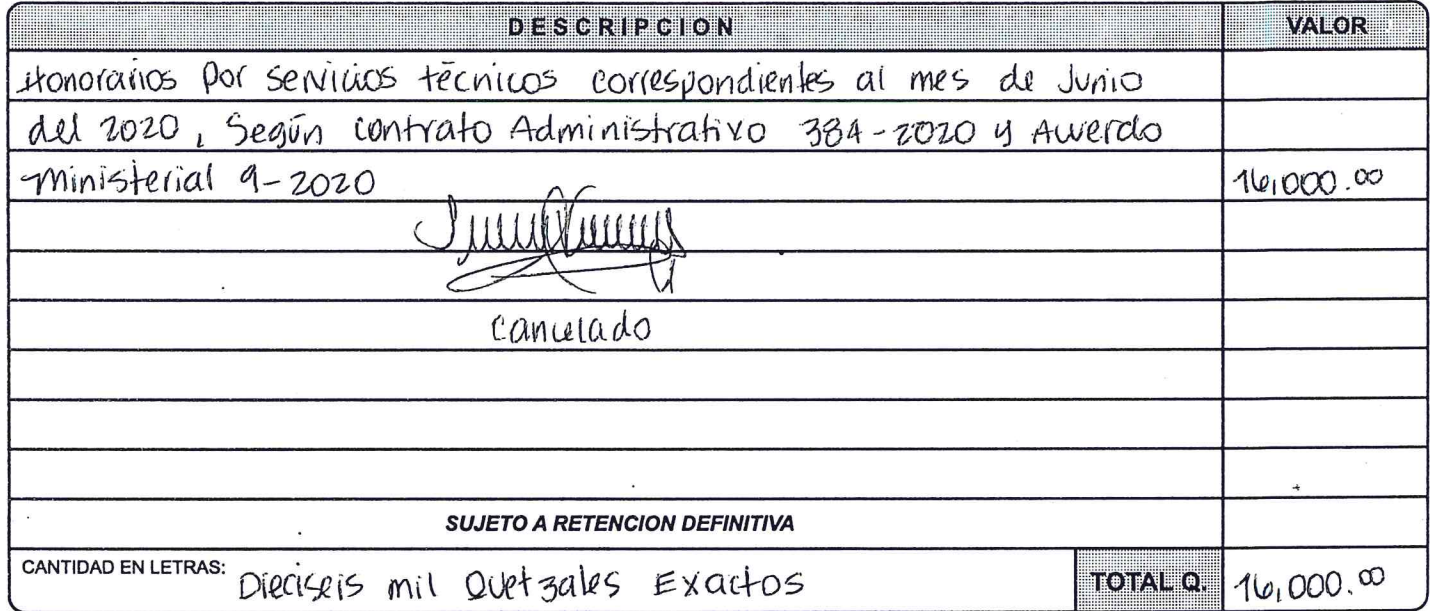 DESCRIPCION VALOR
Honorarios por servicios técnicos correspondientes al mes de Junio
del 2020, Según contrato Administrativo 384-2020 y Acuerdo
Ministerial 9-2020 16,000.00
cancelado
SUJETO A RETENCION DEFINITIVA
CANTIDAD EN LETRAS: Dieciseis mil Quetzales Exactos TOTAL Q. 16,000.00